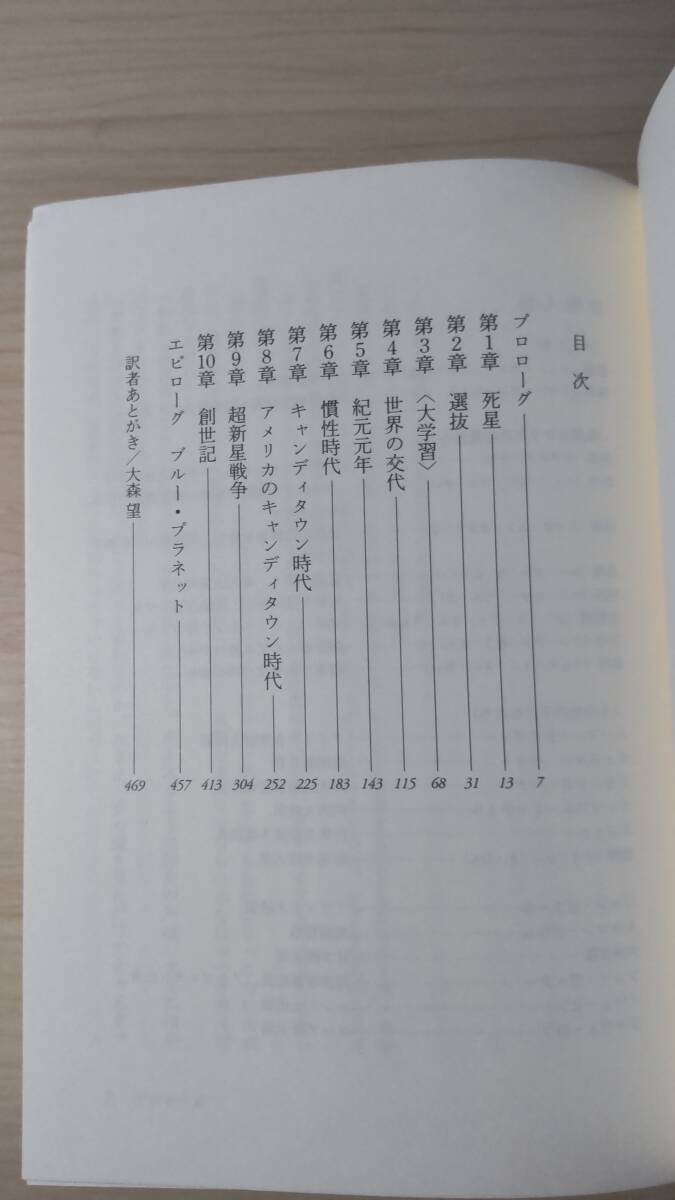 目次
プロローグ 7
第1章 死星 13
第2章 選抜 31
第3章 〈大学習〉 68
第4章 世界の交代 115
第5章 紀元元年 143
第6章 慣性時代 183
第7章 キャンディタウン時代 225
第8章 アメリカのキャンディタウン時代 252
第9章 超新星戦争 304
第10章 創世記 413
エピローグ ブルー・プラネット 457
訳者あとがき/大森望 469